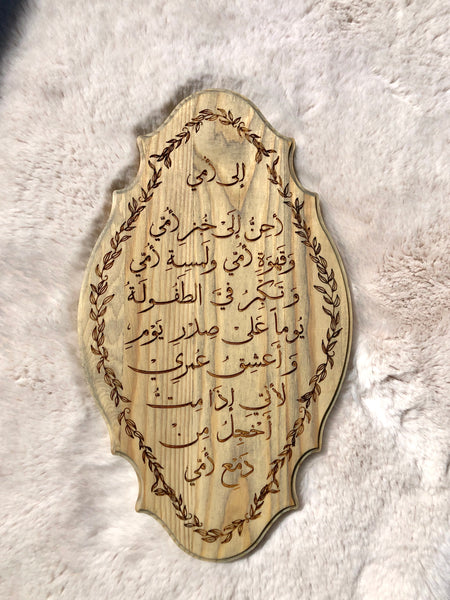 إلى أمي
أحنُّ إلى خُبز أمّي
وَقَهوَةِ أمّي وَلَمسِةِ أمّي
وَتَكبُر فيَّ الطُفُولَةُ
يُوماً عَلىٰ صَدرِ يَوم
وَأعشقُ عُمرِي
لأنّي إذَا مِتُّ
أخجل مِنْ
دَمع أُمّي